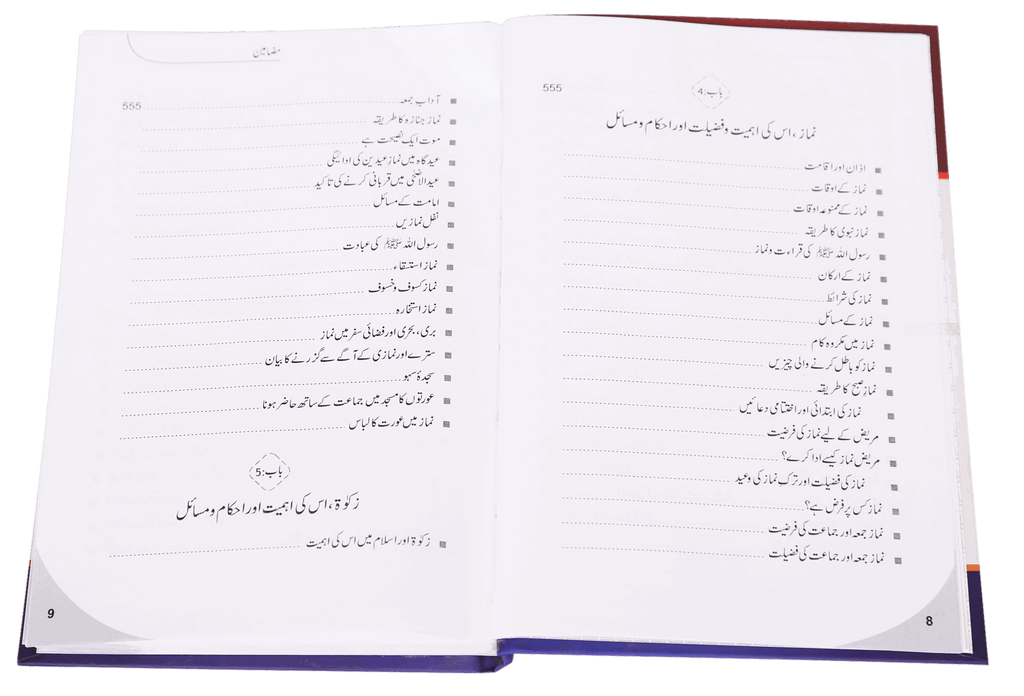 555
باب:4
نماز، اس کی اہمیت و فضیلت اور احکام و مسائل
اذان اور اقامت
نماز کے اوقات
نماز کے ممنوعہ اوقات
نماز نبوی کا طریقہ
رسول اللہ ﷺ کی قراءت و نماز
نماز کے ارکان
نماز کی شرائط
نماز کے مسائل
نماز میں مکروہ کام
نماز کو باطل کرنے والی چیزیں
نماز صبح کا طریقہ
نماز کی ابتدائی اور اختتامی دعائیں
مریض کے لیے نماز کی فرضیت
مریض نماز کیسے ادا کرے؟
نماز کی فضیلت اور ترکِ نماز کی وعید
نماز کس پر فرض ہے؟
نماز جمعہ اور جماعت کی فرضیت
نماز جمعہ اور جماعت کی فضیلت
8
مضامین
آداب جمعہ 555
نماز جنازہ کا طریقہ
موت ایک نصیحت ہے
عید گاہ میں نماز عیدین کی ادائیگی
عیدالاضحٰی میں قربانی کرنے کی تاکید
امامت کے مسائل
نفل نمازیں
رسول اللہ ﷺ کی عبادت
نماز استسقاء
نماز کسوف و خسوف
نماز استخارہ
بری، بحری اور فضائی سفر میں نماز
سترے اور نمازی کے آگے سے گزرنے کا بیان
سجدۂ سہو
عورتوں کا مسجد میں جماعت کے ساتھ حاضر ہونا
نماز میں عورت کا لباس
باب:5
زکوٰۃ، اس کی اہمیت اور احکام و مسائل
زکوٰۃ اور اسلام میں اس کی اہمیت
9